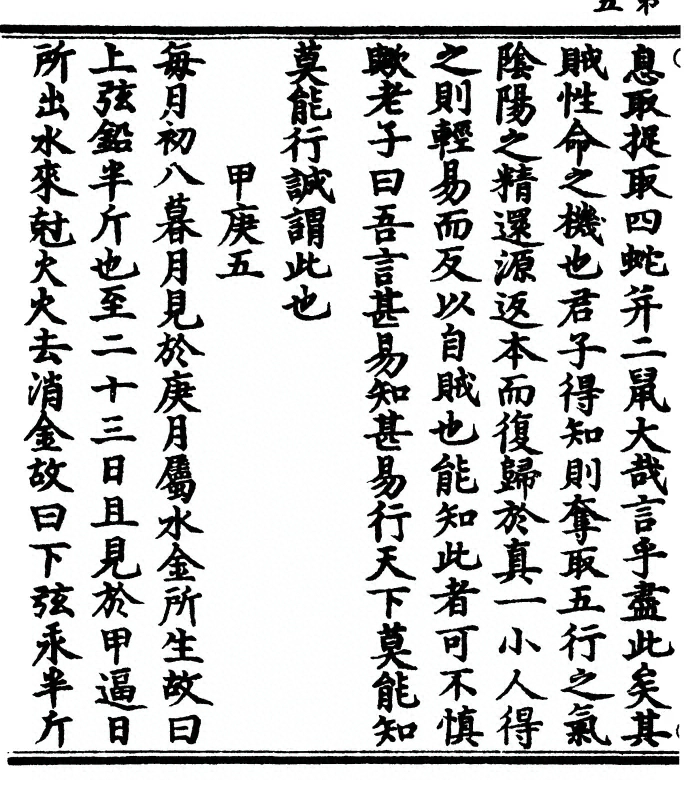 息取捉取四蛇并二鼠大哉言乎盡此矣其
賊性命之機也君子得知則奪取五行之氣
陰陽之精還源返本而復歸於真一小人得
之則輕易而反以自賊也能知此者可不慎
歟老子曰吾言甚易知甚易行天下莫能知
莫能行誠謂此也
甲庚五
每月初八暮月見於庚月屬水金所生故曰
上弦鉛半斤也至二十三日且見於甲逼日
所出水來尅火火去消金故曰下弦汞半斤